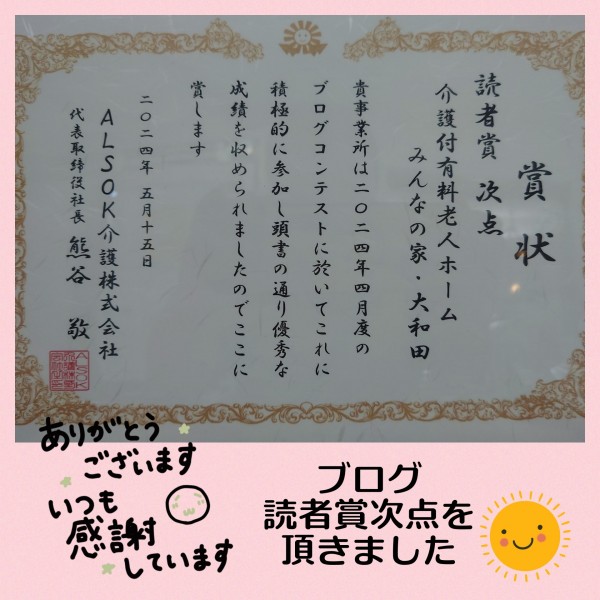 賞状
読者賞 次点
介護付有料老人ホーム
みんなの家・大和田
貴事業所は二〇二四年四月度の
ブログコンテストに於いてこれに
積極的に参加し頭書の通り優秀な
成績を収められましたのでここに
賞します
二〇二四年 五月十五日
ALSOK介護株式会社
代表取締役社長 熊谷 敬
ありがとう
ございます
いつも
感謝
しています
ブログ
読者賞次点を
頂きました